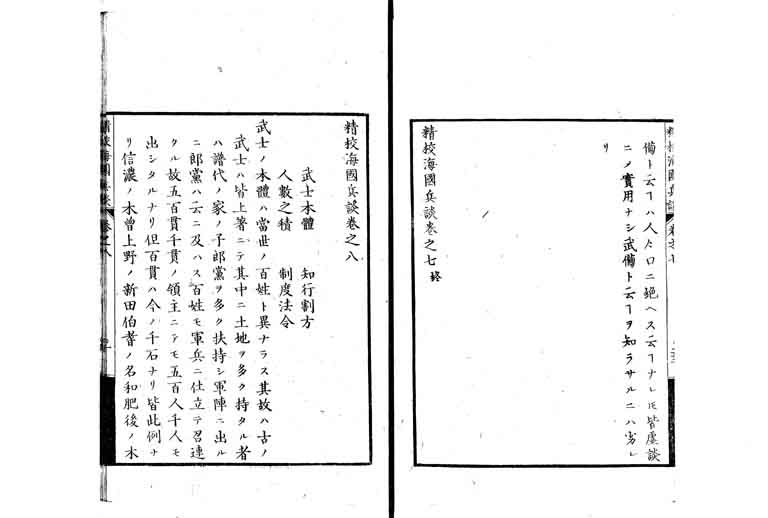 備ト云ヿハ人々口ニ絶ヘス云ヿナレ𪜈皆虚談
ニメ實用ナシ武備ト云ヿヲ知ラサルニハ劣レ
リ
精挍海國兵談卷之七終
精挍海國兵談 卷之七
精挍海國兵談卷之八
武士本體 知行割方
人數之積 制度法令
武士ノ本體ハ當世ノ百姓ト異ナラス其故ハ古ノ
武士ハ皆上著ニテ其中ニ土地ヲ多ク持タル者
ハ譜代ノ家ノ子郎黨ヲ多ク扶持シ軍陣ニ出ル
ニ郎黨ハ云ニ及ハス百姓モ軍兵ニ仕立テ召連
タル故五百貫千貫ノ領主ニテモ五百人千人モ
出シタルナリ但百貫ハ今ノ千石ナリ皆此例ナ
リ信濃ノ木曾上野ノ新田伯耆ノ名和肥後ノ木
精挍海國兵談 卷之八